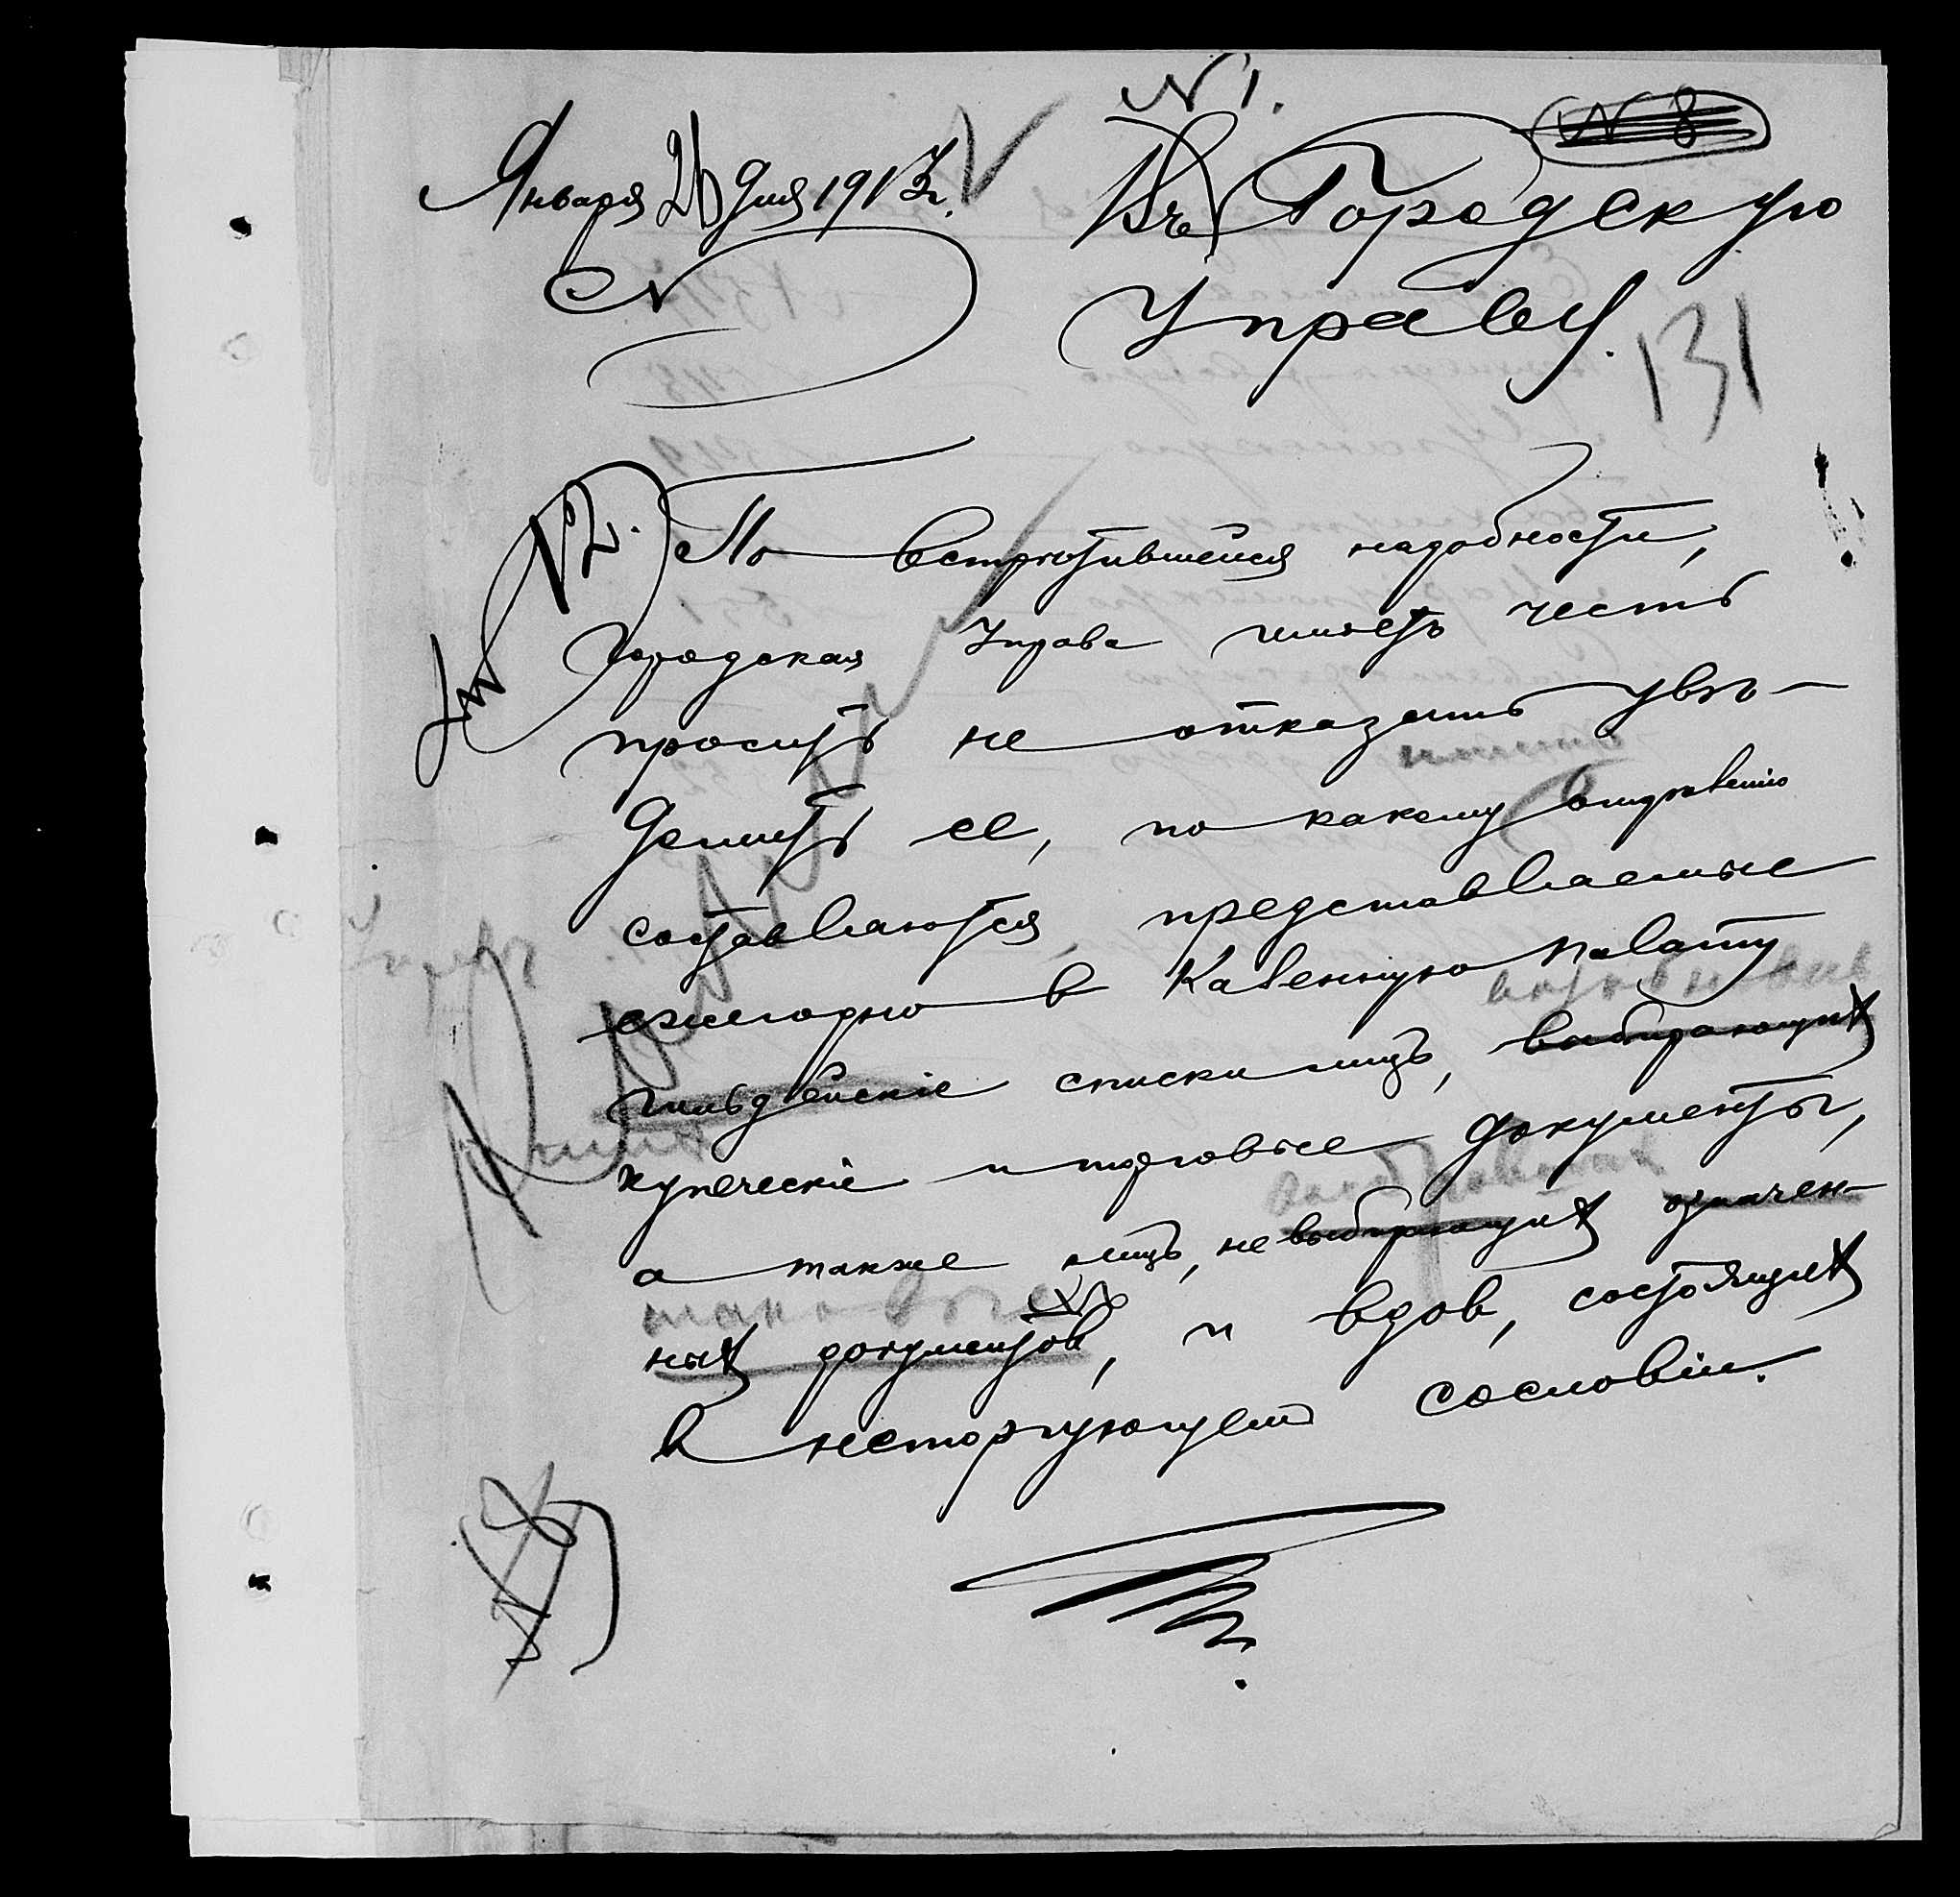 № 1.
№ 8
Января 26 дня 1913 г.
Въ Городскую
№
Управу.
131
По встрѣтившейся надобности,
Городская Управа имѣетъ честь
проситъ не отказать увѣ-
домить ее, по какому
составляются, представляемые
ежегодно в Казенную Палату
гильдейскіе списки лицъ, выбирающихъ
купеческіе и торговые документы,
а также лицъ, не выбирающихъ означен-
таковые
ныхъ документов, и вдов, состоящихъ
в неторгующем сословіи.